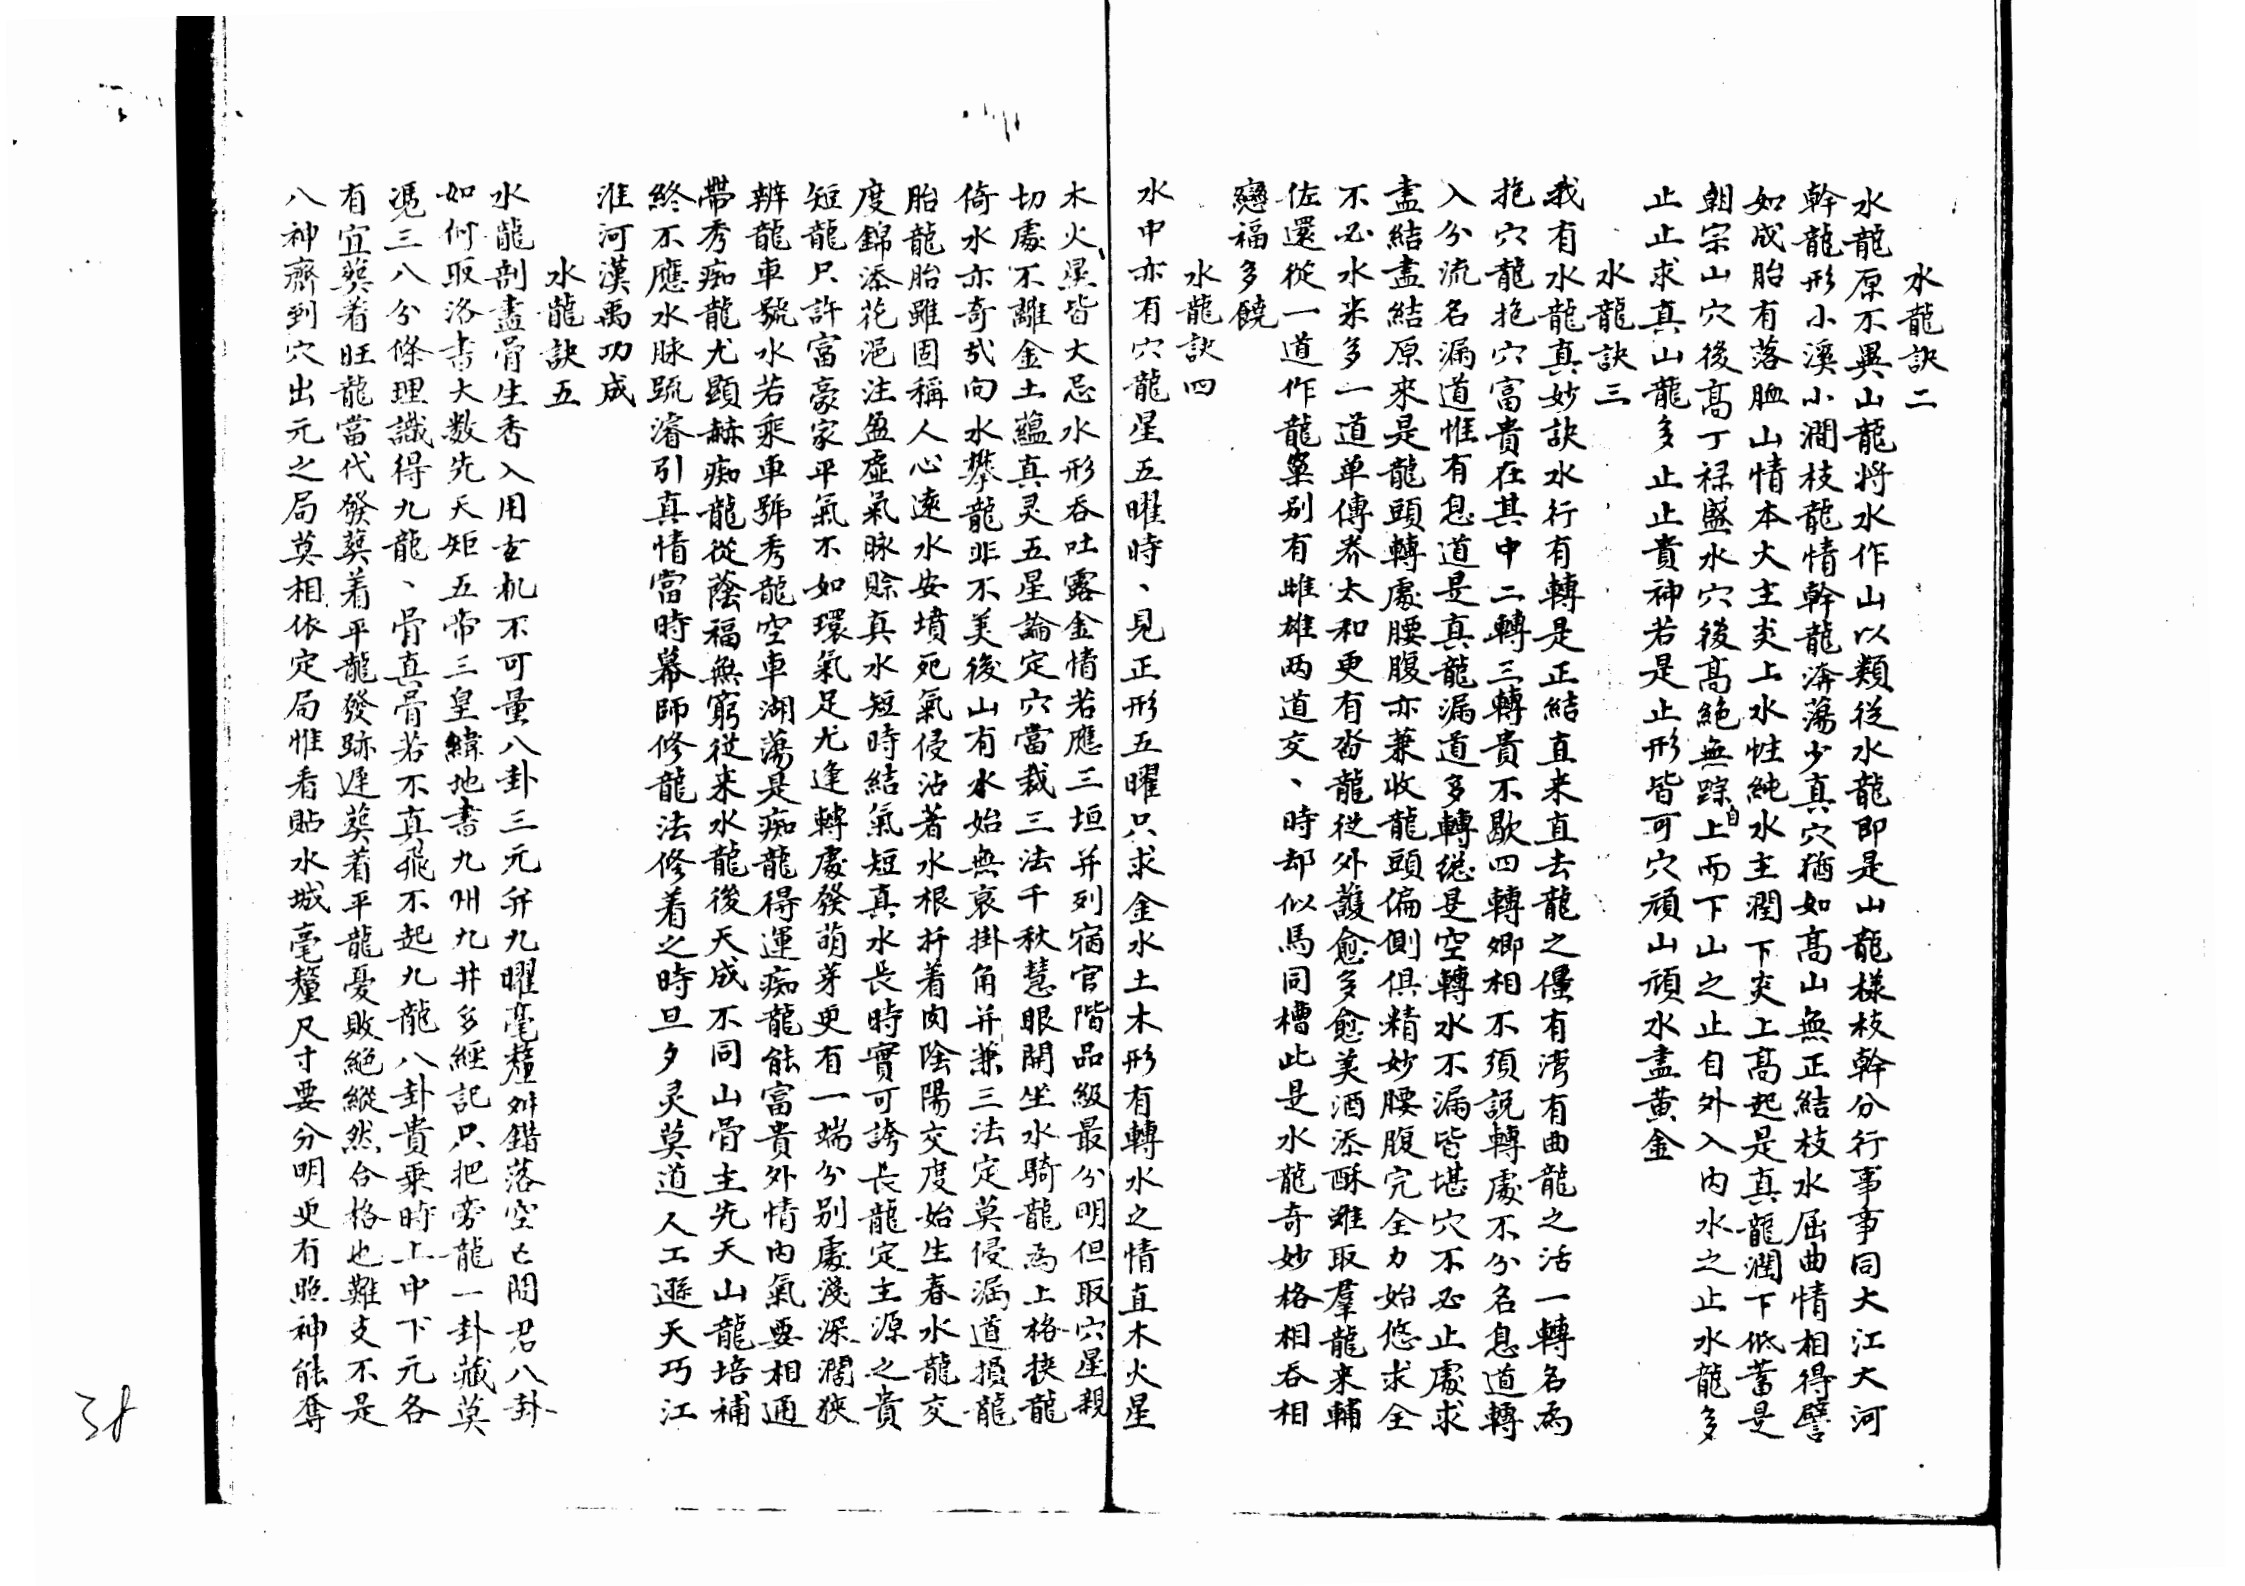 水龍訣二
水龍原不異山龍将水作山以類從水龍即是山龍樣枝幹分行事事同大江大河
幹龍形小溪小澗枝龍情幹龍渀蕩少真穴猶如高山無正結枝水屈曲情相得譬
如成胎有落脑山情本大主炎上水性純水主潤下炎上高起是真龍潤下低蓄是
朝宗山穴後高丁祿盛水穴後高絶無踪自上而下山之止自外入内水之止水龍多
止止求真山龍多止止貴神若是止形皆可穴頑山頑水盡黄金
水龍訣三
我有水龍真妙訣水行有轉是正結直来直去龍之僵有湾有曲龍之活一轉名為
抱穴龍抱穴富貴在其中二轉三轉貴不歇四轉卿相不須説轉處不分名息道轉
入分流名漏道惟有息道是真龍漏道多轉総是空轉水不漏皆堪穴不必止處求
盡結盡結原来是龍頭轉處腰腹亦兼收龍頭偏側俱精妙腰腹完全力始悠求全
不必水来多一道单傳养太和更有沓龍從外護愈多愈美酒添酥雖取羣龍来輔
佐還從一道作龍窠别有雌雄两道交、時却似馬同槽此是水龍奇妙格相吞相
戀福多饒
水龍訣四
水中亦有穴龍星五曜時、見正形五曜只求金水土木形有轉水之情直木火星
木火、星皆大忌水形吞吐露金情若應三垣并列宿官階品級最分明但取穴星親
切處不離金土蘊真灵五星論定穴當裁三法千秋慧眼開坐水騎龍為上格挟龍
倚水亦奇哉向水攀龍非不美後山有水始無哀掛角并兼三法定莫侵漏道損龍
胎龍胎雖固稱人心遠水安墳死氣侵沾著水根拚着肉陰陽交度始生春水龍交
度錦添花浥注盈虚氣脉賒真水短時結氣短真水長時實可誇長龍定主源之貴
短龍只許富豪家平氣不如環氣足尤逢轉處發萌芽更有一端分别處淺深濶狹
辨龍車號水若乘車號秀龍空車湖蕩是痴龍得運痴龍能富貴外情内氣要相通
帶秀痴龍尤顕赫痴龍從蔭福無窮從来水龍後天成不同山骨主先天山龍培補
終不應水脉疏濬引真情當時幕師修龍法修着之時旦夕灵莫道人工遜天巧江
淮河漢禹功成
水龍訣五
水龍剖盡骨生香入用玄机不可量八卦三元并九曜毫釐姘錯落空亡問君八卦
如何取洛書大数先天矩五帝三皇緯地書九州九井多經記只把旁龍一卦藏莫
慿三八分條理識得九龍、骨真骨若不真飛不起九龍八卦貴乘時上中下元各
有宜葬着旺龍當代發葬着平龍發跡遲葬着平龍憂敗絕縱然合格也難支不是
八神齊到穴出元之局莫相依定局惟看貼水城毫釐尺寸要分明更有照神能奪
38